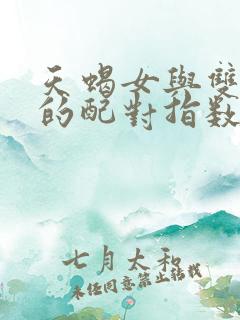 天蝎女與雙
的配對指数
七月太和
未经同意禁止转载